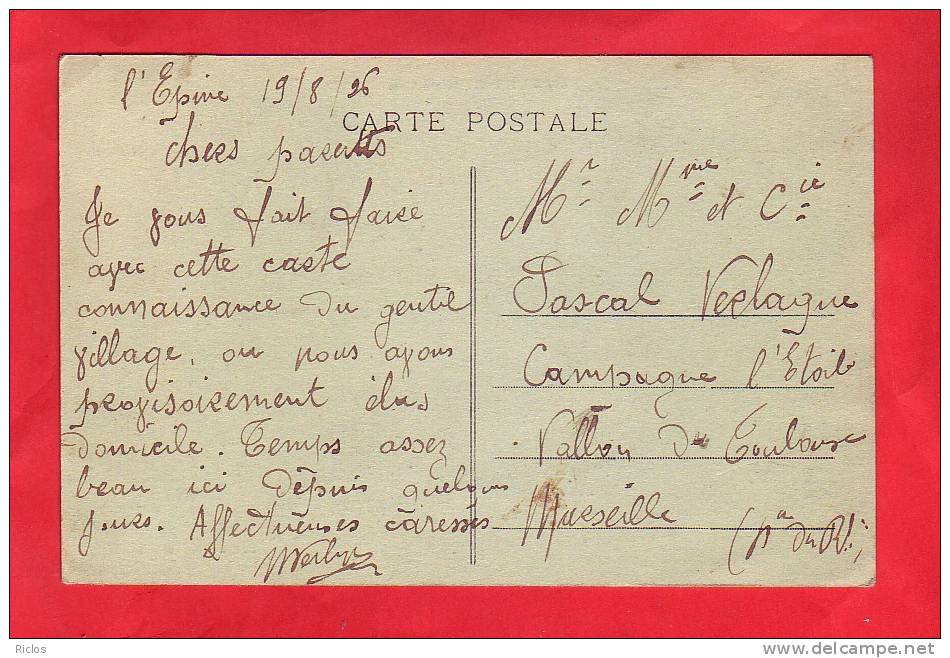 l'Epine 19/8/26
CARTE POSTALE
Chers parents
Je vous fait faire
avec cette carte
connaissance du gentil
village, ou nous avons
provisoirement élus
domicile. Temps assez
beau ici depuis quelques
jours. Affectueuses caresses
Mr Mme et Cie
Pascal Verlaque
Campagne l'Etoile
Vallon de Toulouse
Marseille
(Bd du R
Riclos
www.delcampe.net